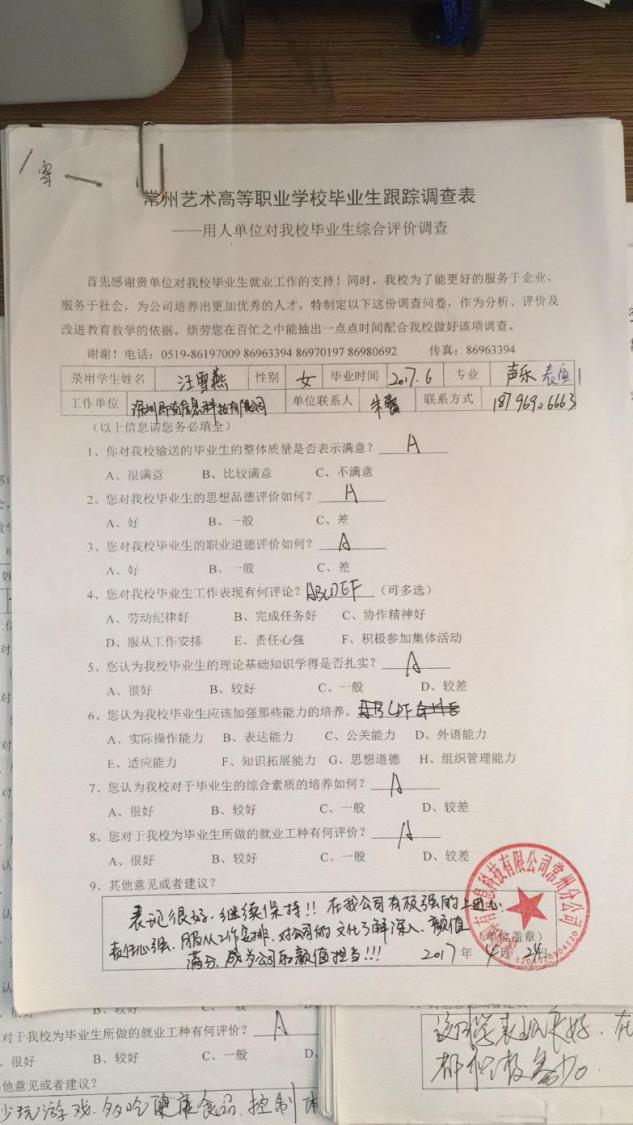 常州艺术高等职业学校毕业生跟踪调查表
——用人单位对我校毕业生综合评价调查
首先感谢贵单位对我校毕业生就业工作的支持！同时，我校为了能更好的服务于企业、
服务于社会，为公司培养出更加优秀的人才，特制定以下这份调查问卷，作为分析、评价及
改进教育教学的依据。烦劳您在百忙之中能抽出一点点时间配合我校做好该项调查。
谢谢！电话：0519-86197009 86963394 86970197 86980692 传真：86963394
录用学生姓名 汪雪燕 性别 女 毕业时间 2017.6 专业 声乐表演
工作单位 深圳 信息科技有限公司 单位联系人 朱馨 联系方式 18796906663
（以上信息请您务必填全）
1、你对我校输送的毕业生的整体质量是否表示满意？ A
A、很满意 B、比较满意 C、不满意
2、您对我校毕业生的思想品德评价如何？ A
A、好 B、一般 C、差
3、您对我校毕业生的职业道德评价如何？ A
A、好 B、一般 C、差
4、您对我校毕业生工作表现有何评论？ABCDEF （可多选）
A、劳动纪律好 B、完成任务好 C、协作精神好
D、服从工作安排 E、责任心强 F、积极参加集体活动
5、您认为我校毕业生的理论基础知识学得是否扎实？ A
A、很好 B、较好 C、一般 D、较差
6、您认为我校毕业生应该加强那些能力的培养。ABCDF
A、实际操作能力 B、表达能力 C、公关能力 D、外语能力
E、适应能力 F、知识拓展能力 G、思想道德 H、组织管理能力
7、您认为我校对于毕业生的综合素质的培养如何？ A
A、很好 B、较好 C、一般 D、较差
8、您对于我校为毕业生所做的就业工种有何评价？ A
A、很好 B、较好 C、一般 D、较差
9、其他意见或者建议？
表记很好，继续保持!! 在我公司有极强的上进心
责任心强，服从工作安排，对公司的文化了解深入、颜值
满分，成为公司的颜值担当!!!
（单位盖章）
2017 年 4 月 24
信息科技有限公司常州分公司
3204020904320
对于我校为毕业生所做的就业工种有何评价？ A
很好 B、较好 C、一般 D、
他意见或者建议？
少玩游戏，多吃健康食品，控制体
这同学表现良好，在